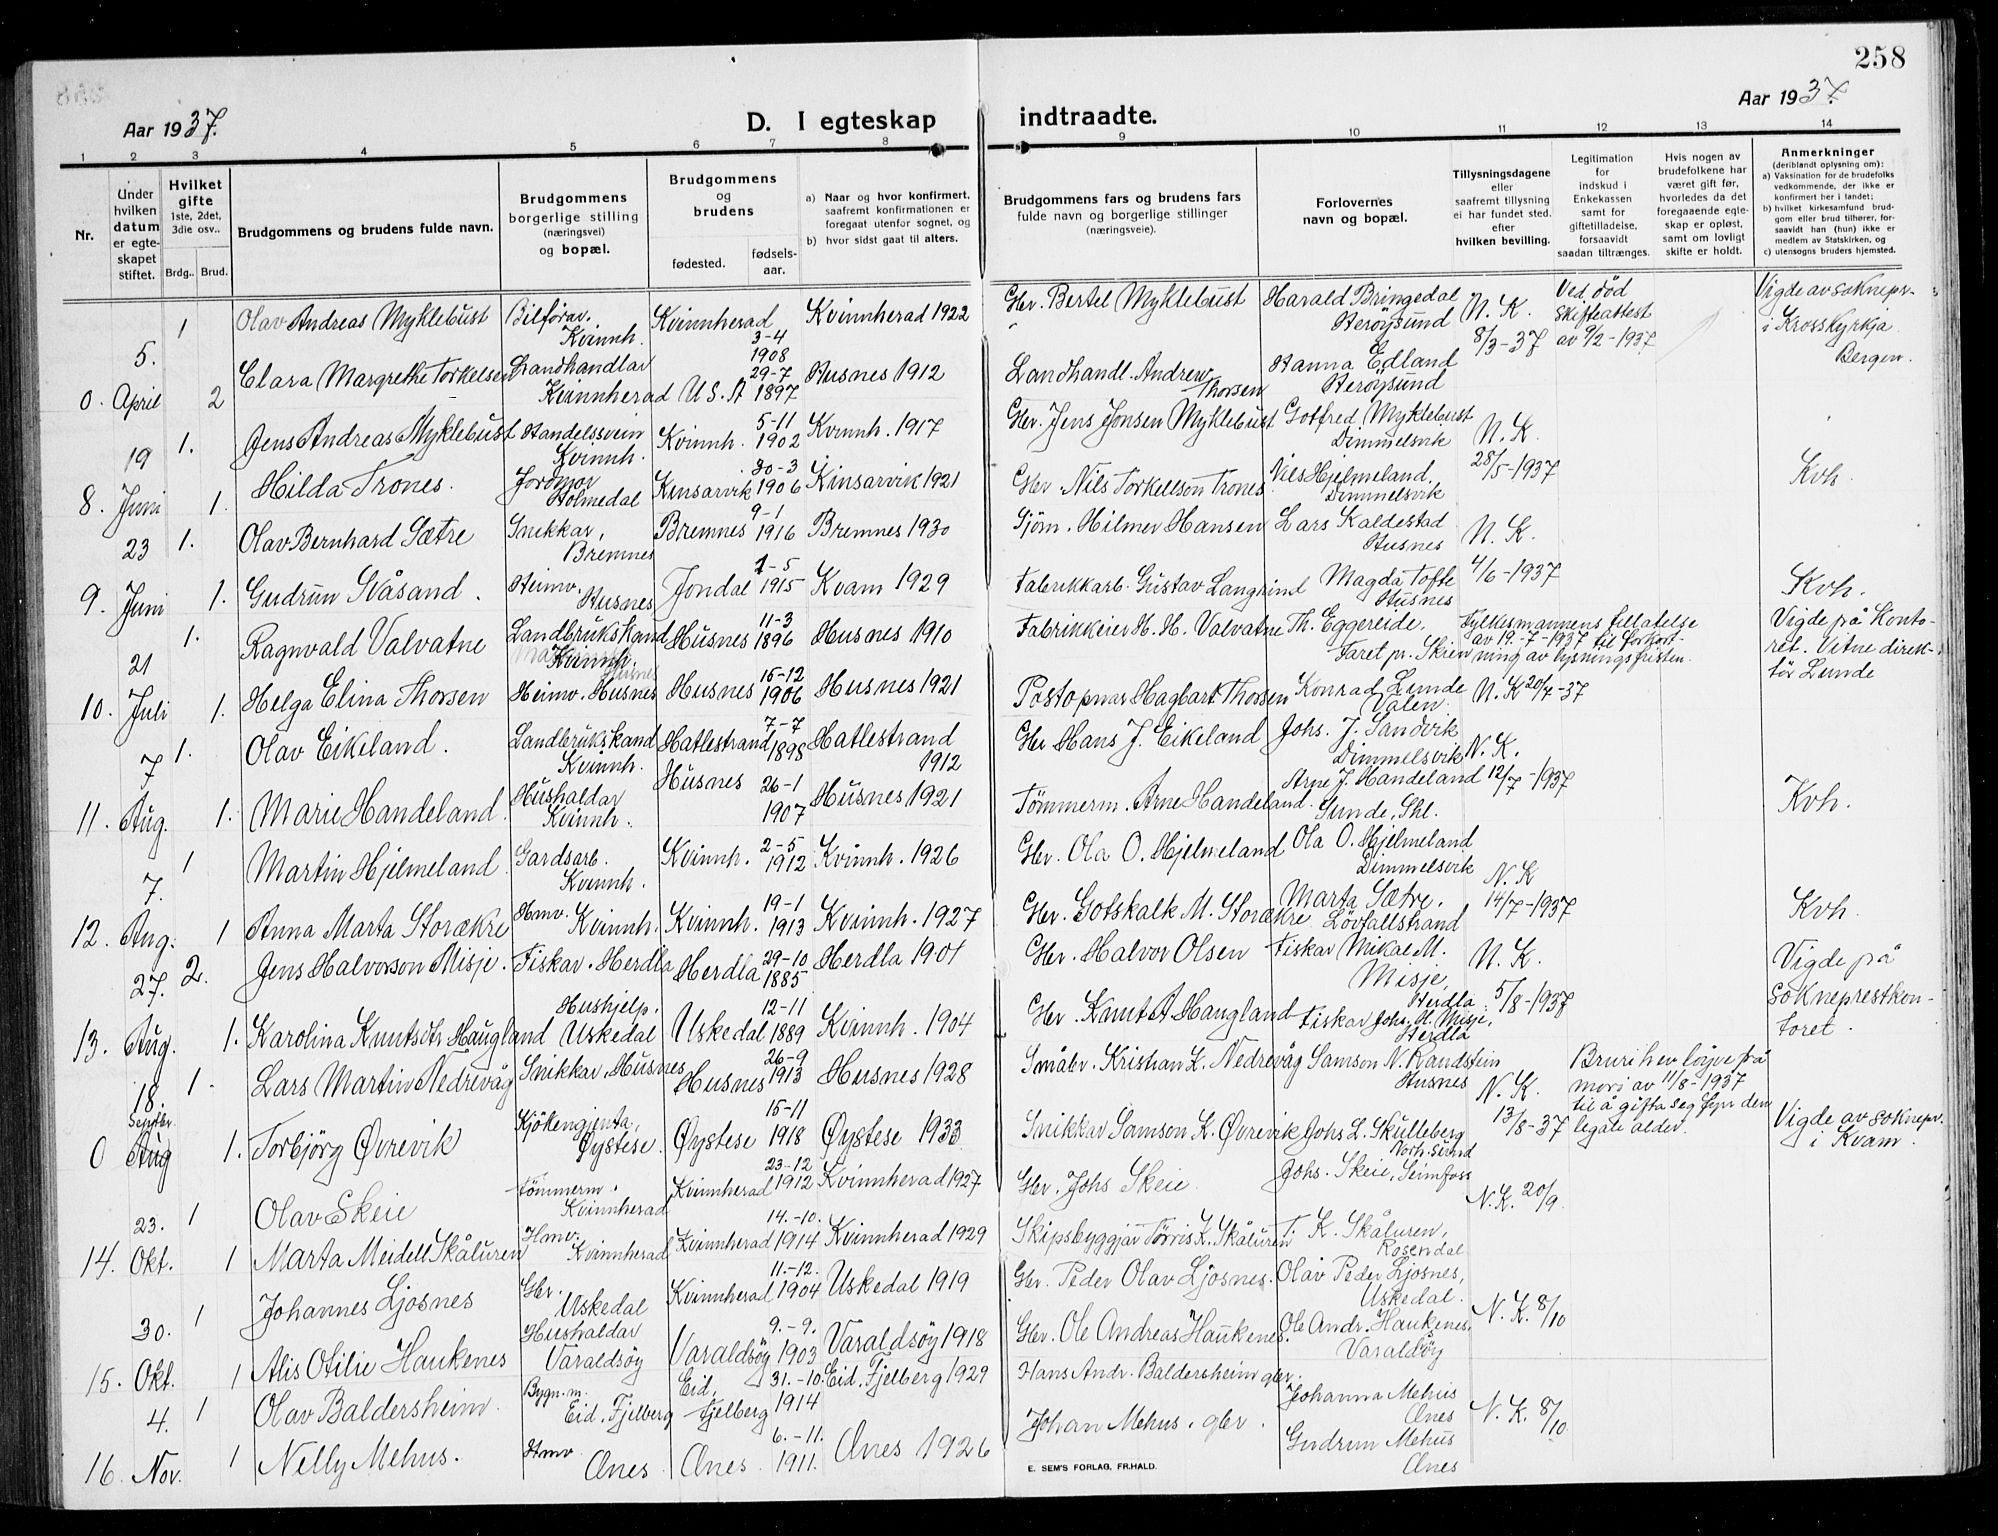 258
Aar 1937.
D. I egteskap indtraadte.
Aar 1937.
1 2 3 4 5 6 7 8 9 10 11 12 13 14
Nr.
Under hvilken datum er egteskapet stiftet.
Hvilket gifte 1ste, 2det, 3die osv.. Brdg.. Brud.
Brudgommens og brudens fulde navn.
Brudgommens borgerlige stilling (næringsvei) og bopæl.
Brudgommens og brudens fødested. fødselsaar.
a) Naar og hvor konfirmert, saafremt konfirmationen er foregaat utenfor sognet, og
b) hvor sidst gaat til alters.
Brudgommens fars og brudens fars fulde navn og borgerlige stillinger (næringsveie).
Forlovernes navn og bopæl.
Tillysningsdagene eller saafremt tillysning ei har fundet sted. efter hvilken bevilling.
Legitimation for indskud i Enkekassen samt for giftetilladelse, forsaavidt saadan tiltrænges.
Hvis nogen av brudefolkene har været gift før, hvorledes da det foregaaende egteskap er opløst, samt om lovligt skifte er holdt.
Anmerkninger (deriblandt oplysning om):
a) Vaksination for de brudefolks vedkommende, der ikke er konfirmert her i landet;
b) hvilket kirkesamfund brudgom eller brud tilhører, forsaavidt han (hun) ikke er medlem av Statskirken, og
c) utensogns bruders hjemsted.
0. 5. April 1 Olav Andreas Myklebust Bilförar. Kvinnh. Kvinnherad 3-4 1908 Kvinnherad 1922 Gbr. Bertel Myklebust Harald Bringedal Herøysund N. K. 8/3-37 Ved död skifteattest av 9/2-1937 Vigde av soknepr. i Krosskyrkja Bergen.
2 Clara Margrethe Torkelsen Landhandlar Kvinnherad U S. A 29-7 1897 Husnes 1912 Landhandl. Andrew Thorsen Hanna Edland Herøysund
8. 19 Juni 1. Jens Andreas Myklebust Handelssvein Kvinnh. Kvinnh. 5-11 1902 Kvinnh. 1917 Gbr. Jens Jonsen Myklebust Gotfred Myklebust Dimmelsvik N. K. 28/5-1937 Kvh.
1. Hilda Trones. Jordmor Holmedal Kinsarvik 30-3 1906 Kinsarvik 1921 Gbr. Nils Torkellson Trones Nils Hjelmeland, Dimmelsvik
9. 23 Juni 1. Olav Bernhard Sætre Snikkar, Bremnes Bremnes 9-1 1916 Bremnes 1930 Sjöm. Hilmer Hansen Lars Kaldestad Husnes N. K. 4/6-1937 Kvh.
1. Gudrun Svåsand. Heimv. Husnes Jondal 1-5 1915 Kvam 1929 Fabrikkarb. Gustav Langrind Magda Tofte Husnes
10. 21 Juli 1. Ragnvald Valvatne Landbrukskand Kvinnh. Husnes 11-3 1896 Husnes 1910 Fabrikkeier H. H. Valvatne Th. Eggereide, Faret pr. Skien Fylkesmannens tillatelse av 19.-7-1937 til forkortning av lysningsfristen. Vigde på Kontoret. Vitne direktör Lunde
1. Helga Elina Thorsen Heimv. Husnes Husnes 15-12 1906 Husnes 1921 Postopnar Hagbart Thorsen Konrad Lunde Valen N. K 20/7-37
11. 7 Aug. 1. Olav Eikeland. Landbrukskand Kvinnh. Hatlestrand 7-7 1898 Hatlestrand 1912 Gbr Hans J. Eikeland Johs. J. Sandvik Dimmelsvik N. K. 12/7-1937 Kvh.
1. Marie Handeland. Hushaldar Kvinnh. Husnes 26-1 1907 Husnes 1921 Tömmerm. Arne Handeland. Arne J. Handeland Sunde, Shl.
12. 7. Aug. 1 Martin Hjelmeland Gardsarb. Kvinnh. Kvinnh. 2-5 1912 Kvinnh. 1926 Gbr. Ola O. Hjelmeland Ola O. Hjelmeland Dimmelsvik N. K 14/7-1937 Kvh.
1 Anna Marta Storækre Hmv. Kvinnh. Kvinnh. 19-1 1913 Kvinnh. 1927 Gbr. Gotskalk M. Storækre Marta Sætre, Lövfallstrand
13. 27. Aug. 2. Jens Halvorson Misje. Fiskar. Herdla Herdla 29-10 1885 Herdla 1901 Gbr. Halvor Olsen Fiskar Mikal M. Misje, Herdla N. K. 5/8-1937 Vigde på soknepresTkontoret.
1. Karolina Knutsdtr Haugland Hushjelp. Uskedal Uskedal 12-11 1889 Kvinnh. 1904 Gbr. Knut A Haugland Fiskar Johs. M. Misje, Herdla
0 18. Septbr. Aug 1. Lars Martin Nedrevåg Snikkar, Husnes Husnes 26-9 1913 Husnes 1928 Småbr. Kristian L. Nedrevåg Samson N. Randstein Husnes N. K. 13/8-37 Bruri hev löyve frå mori av 11/8-1937 til å gifta seg fyr den legale alder. Vigde av soknepr. i Kvam.
1. Torbjörg Øvrevik Kjökengjenta, Øystese. Øystese 15-11 1918 Øystese 1933 Snikkar Samson K. Øvrevik Johs L. Skulleberg Norh.sund
14. 23. Okt. 1 Olav Skeie Tömmerm. Kvinnherad Kvinnherad 23-12 1912 Kvinnherad 1927 Gbr. Johs Skeie. Johs. Skeie, Seimfoss N. K. 20/9
1 Marta Meidell Skåluren Hmv. Kvinnherad Kvinnherad 14.-10. 1914 Kvinnherad 1929 Skipsbyggjar Törris K. Skåluren T. K. Skåluren, Rosendal
15. 30. Okt. 1 Johannes Ljosnes Gbr. Uskedal Kvinnherad 11.-12. 1904 Uskedal 1919 Gbr. Peder Olav Ljosnes. Olav Peder Ljosnes, Uskedal. N. K. 8/10
1 Alis Otilie Haukenes Hushaldar Varaldsöy Varaldsöy 9.-9. 1903 Varaldsöy 1918 Gbr. Ole Andreas Haukenes. Ole Andr. Haukenes, Varaldsöy
16. 4. Nov. 1 Olav Baldersheim. Bygn.m. Eid, Fjelberg Eid, Fjelberg 31.-10. 1914 Eid, Fjelberg 1929 Hans Andr. Baldersheim gbr. Johanna Mehus Ænes N. K. 8/10.
1 Nelly Mehus. Hmv Ænes. Ænes. 6.-11. 1911. Ænes 1926 Johan Mehus. gbr. Gudrun Mehus Ænes
E. SEM'S FORLAG, FR.HALD.